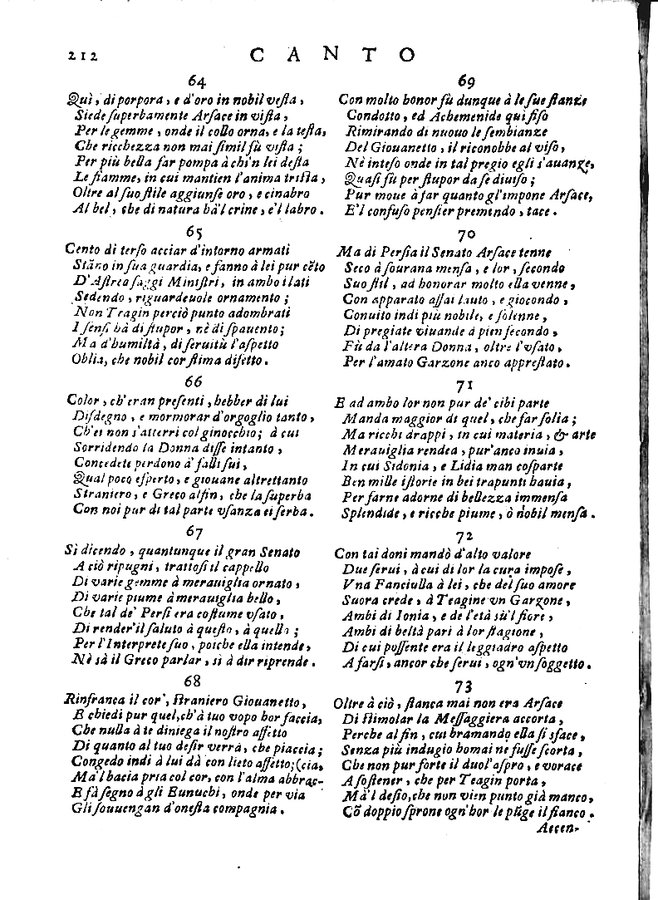 212
CANTO
64
Quì, di porpora, e d'oro in nobil vesta,
Siede superbamente Arsace in vista,
Per le gemme, onde il collo orna, e la testa,
Che ricchezza non mai simil fù vista;
Per più bella far pompa à chi'n lei desta
Le fiamme, in cui mantien l'anima trista,
Oltre al suo stile aggiunse oro, e cinabro
Al bel, che di natura hà'l crine, e'l labro.
65
Cento di terso acciar d'intorno armati
Stāno in sua guardia, e fanno à lei pur cēto
D'Astrea saggi Ministri, in ambo i lati
Sedendo, riguardeuole ornamento;
Non Teagin perciò punto adombrati
I sensi hà di stupor, nè di spauento;
Ma d'humiltà, di seruitù l'aspetto
Oblia, che nobil cor stima difetto.
66
Color, ch'eran presenti, hebber di lui
Disdegno, e mormorar d'orgoglio tanto,
Ch'ei non s'atterri col ginocchio; à cui
Sorridendo la Donna disse intanto,
Concedete perdono à falli sui,
Qual poco esperto, e giouane altrettanto
Straniero, e Greco alfin, che la superba
Con noi pur di tal parte vsanza ei serba.
67
Sì dicendo, quantunque il gran Senato
A ciò ripugni, trattosi il cappello
Di varie gemme à merauiglia ornato,
Di varie piume à merauiglia bello,
Che tal de' Persi era costume vsato,
Di render'il saluto à questo, à quello;
Per l'Interprete suo, poiche ella intende,
Nè sà il Greco parlar, sì à dir riprende.
68
Rinfranca il cor', straniero Giouanetto,
E chiedi pur quel, ch'à tuo vopo hor faccia,
Che nulla à te diniega il nostro affetto
Di quanto al tuo desir verrà, che piaccia;
Congedo indi à lui dà con lieto affetto; (cia,
Ma'l bacia pria col cor, con l'alma abbrac-
E fà segno à gli Eunuchi, onde per via
Gli souuengan d'onesta compagnia.
69
Con molto honor fù dunque à le sue stanze
Condotto, ed Achemenide qui fiso
Rimirando di nuouo le sembianze
Del Giouanetto, il riconobbe al viso,
Nè inteso onde in tal pregio egli s'auanze,
Quasi fù per stupor da se diuiso;
Pur moue à far quanto gl'impone Arsace,
E'l confuso pensier premendo, tace.
70
Ma di Persia il Senato Arsace tenne
Seco à sourana mensa, e lor, secondo
Suo stil, ad honorar molto ella venne,
Con apparato assai lauto, e giocondo,
Conuito indi più nobile, e solenne,
Di pregiate viuande à pien fecondo,
Fù da l'altera Donna, oltre l'vsato,
Per l'amato Garzone anco apprestato.
71
E ad ambo lor non pur de' cibi parte
Manda maggior di quel, che far solia;
Ma ricchi drappi, in cui materia, & arte
Merauiglia rendea, pur'anco inuia,
In cui Sidonia, e Lidia man cosparte
Ben mille istorie in bei trapunti hauia,
Per farne adorne di bellezza immensa
Splendide, e ricche piume, ò nobil mensa.
72
Con tai doni mandò d'alto valore
Due serui, à cui di lor la cura impose,
Vna Fanciulla à lei, che del suo amore
Suora crede, à Teagine vn Garzone,
Ambi di Ionia, e de l'età sù'l fiore,
Ambi di beltà pari à lor stagione,
Di cui possente era il leggiadro aspetto
A farsi, ancor che serui, ogn'vn soggetto.
73
Oltre à ciò, stanca mai non era Arsace
Di stimolar la Messaggiera accorta,
Perche al fin, cui bramando ella si sface,
Senza più indugio homai ne fusse scorta,
Che non pur forte il duol'aspro, e vorace
A sostener, che per Teagin porta,
Mà'l desio, che non vien punto già manco,
Cō doppio sprone ogn'hor le pūge il fianco.
Accen-